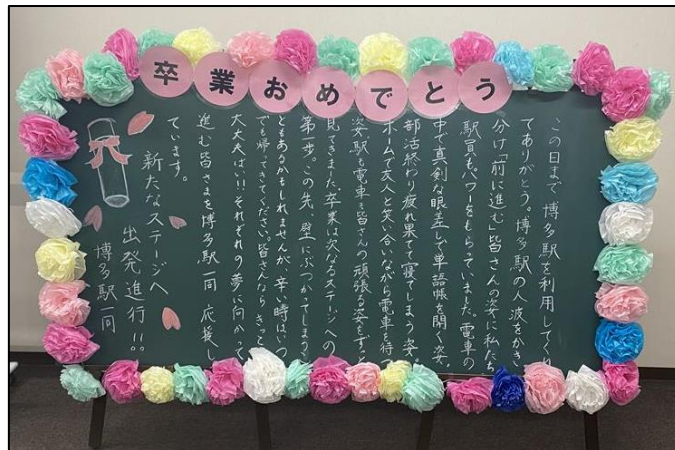 卒業おめでとう
この日まで博多駅を利用してくれ
てありがとう。博多駅の人波をかき
分け「前に進む」皆さんの姿に私たち
駅員もパワーをもらっていました。電車の
中で真剣な眼差しで単語帳を開く姿、
部活終わり疲れ果てて寝てしまう姿。
ホームで友人と笑い合いながら電車を待つ
姿。駅も電車も皆さんの頑張る姿をずっと
見てきました。卒業は次なるステージへの
第一歩。この先、壁にぶつかってしまうこ
ともあるかもしれませんが、辛い時はいつ
でも帰ってきてください。皆さんならきっと
大丈夫ばい!!それぞれの夢に向かって
進む皆さまを博多駅一同 応援し
ています。
新たなステージへ
出発進行!!!
博多駅一同